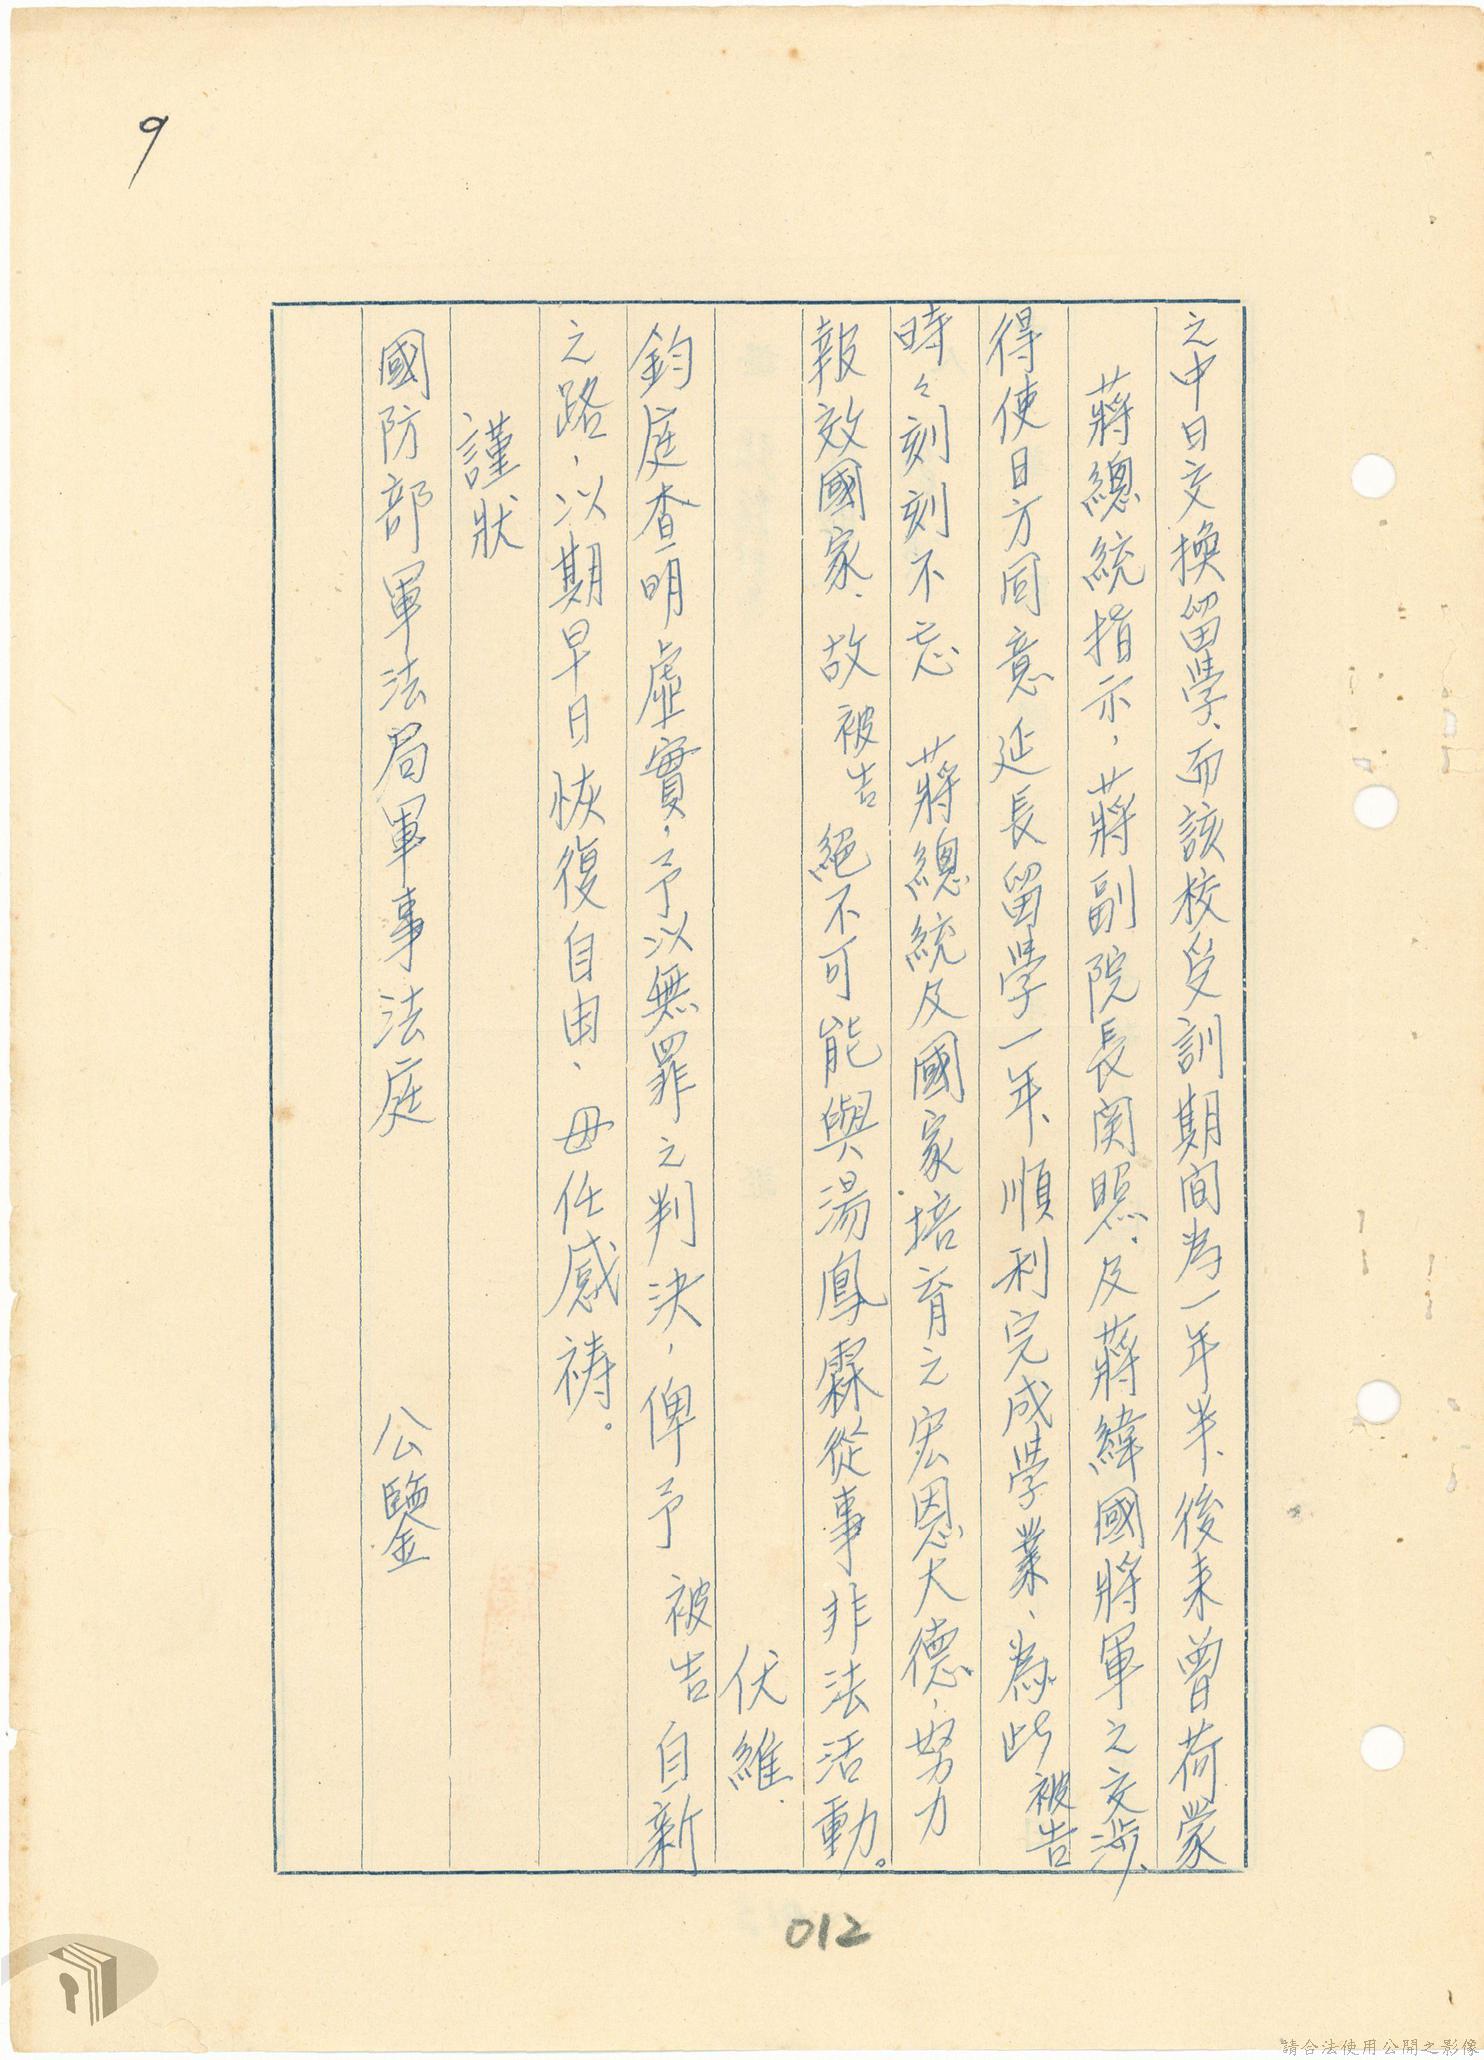 9
之中日交換留學、而該校受訓期間為一年半、後来曾荷蒙
蔣總統指示，蔣副院長関照、及蔣緯國將軍之交涉、
得使日方同意延長留學一年、順利完成學業、為此被告
時々刻刻不忘　蔣總統及國家培育之宏恩大德，努力
報效國家、故被告絕不可能與湯鳳霖從事非法活動。
伏維、
鈞庭查明虛實，予以無罪之判決，俾予被告自新
之路，以期早日恢復自由、毋任感禱。
謹狀
國防部軍法局軍事法庭　公鑒
012
請合法使用公開之影像